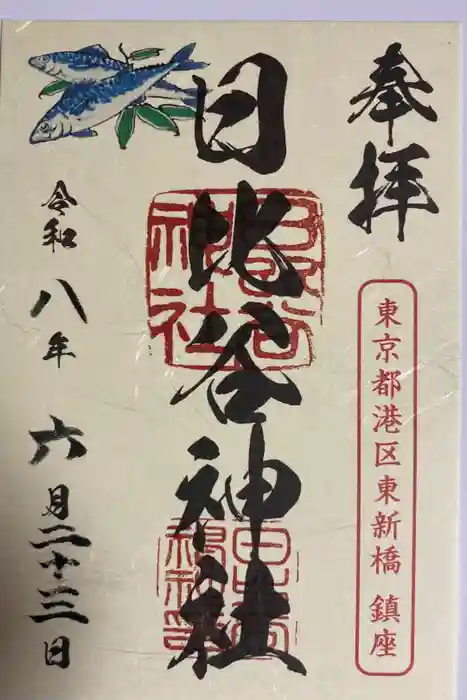 奉拝
東京都港区東新橋 鎮座
日比谷神社
日比谷神社
令和八年 六月二十三日